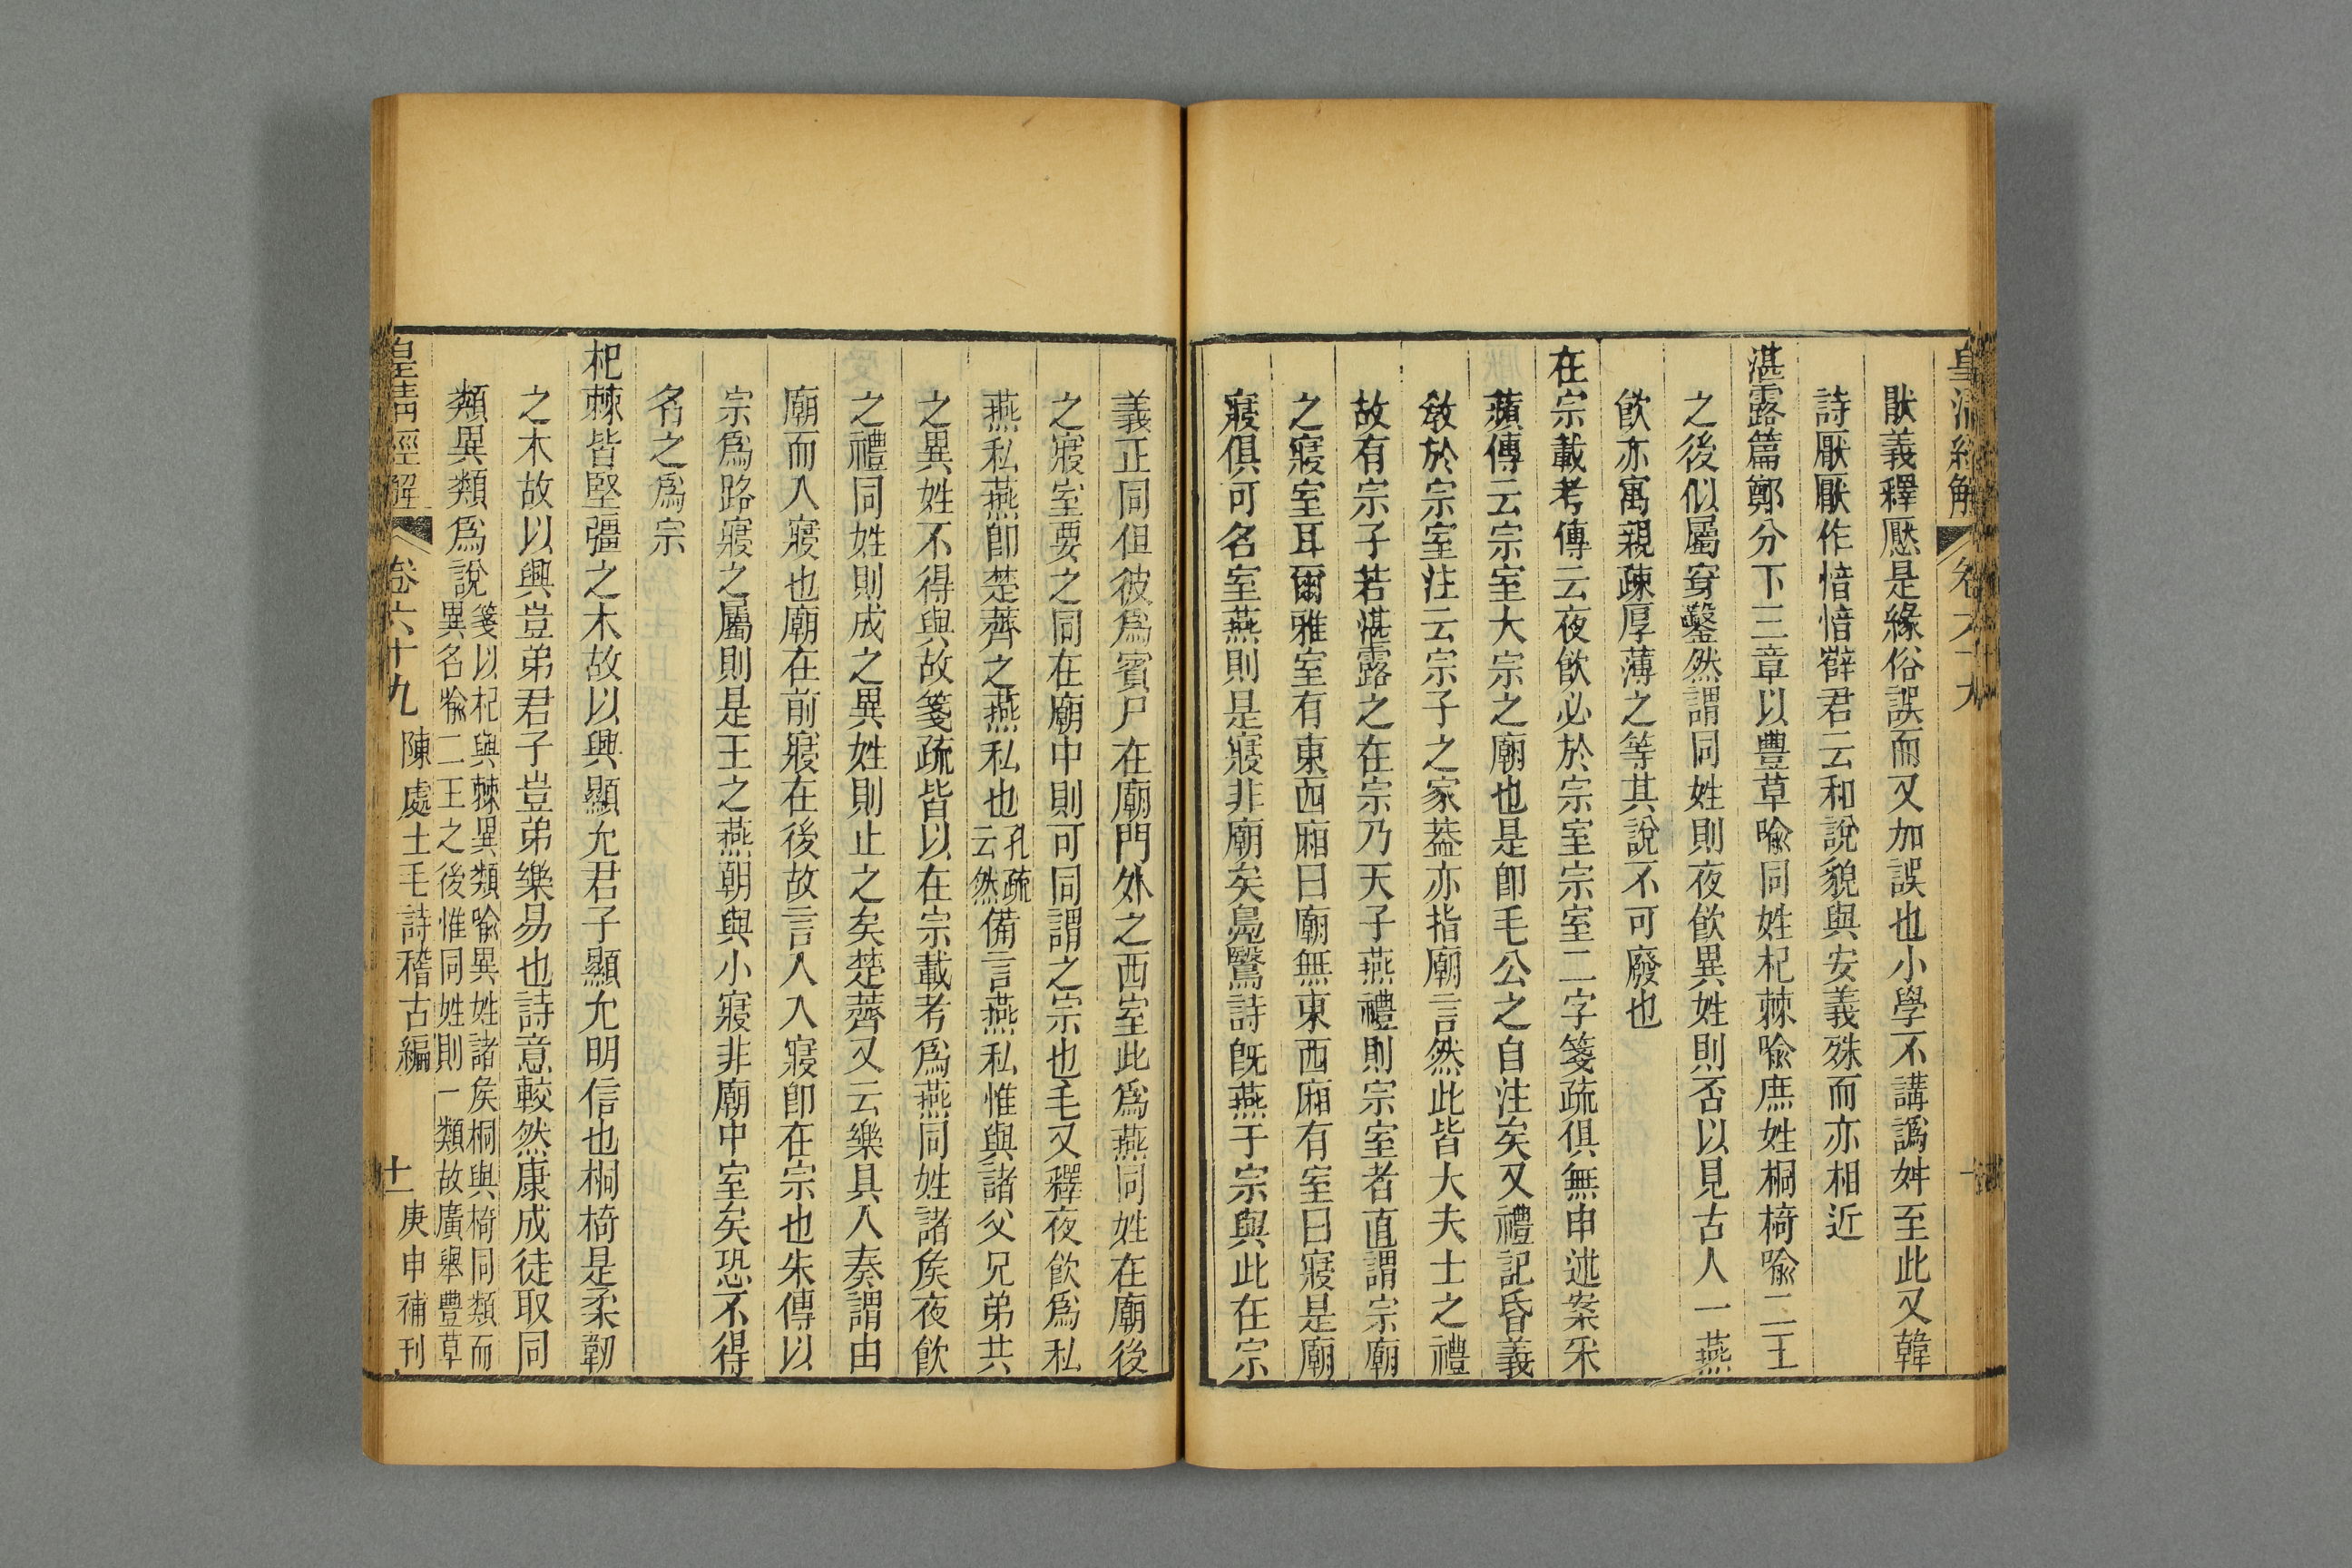 皇清經解 卷六十九
猒義釋懕是緣俗誤而又加誤也小學不講譌舛至此又韓
詩厭厭作愔愔薛君云和說貌與安義殊而亦相近
湛露篇鄭分下三章以豐草喻同姓杞棘喻庶姓桐椅喻二王
之後似屬穿鑿然謂同姓則夜飮異姓則否以見古人一燕
飮亦寓親疎厚薄之等其說不可廢也
在宗載考傳云夜飮必於宗室宗室二字箋疏俱無申述案采
蘋傳云宗室大宗之廟也是卽毛公之自注矣又禮記昏義
敎於宗室注云宗子之家葢亦指廟言然此皆大夫士之禮
故有宗子若湛露之在宗乃天子燕禮則宗室者直謂宗廟
之寢室耳爾雅室有東西廂曰廟無東西廂有室曰寢是廟
寢俱可名室燕則是寢非廟矣鳧鷖詩旣燕于宗與此在宗
義正同但彼爲賓尸在廟門外之西室此爲燕同姓在廟後
之寢室要之同在廟中則可同謂之宗也毛又釋夜飮爲私
燕私燕卽楚薺之燕私也孔疏云然備言燕私惟與諸父兄弟共
之異姓不得與故箋疏皆以在宗載考爲燕同姓諸矦夜飮
之禮同姓則成之異姓則止之矣楚薺又云樂具入奏謂由
廟而入寢也廟在前寢在後故言入入寢卽在宗也朱傳以
宗爲路寢之屬則是王之燕朝與小寢非廟中室矣恐不得
名之爲宗
杞棘皆堅彊之木故以興顯允君子顯允明信也桐椅是柔韌
之木故以興豈弟君子豈弟樂易也詩意較然康成徒取同
類異類爲說箋以杞與棘異類喻異姓諸矦桐與椅同類而異名喻二王之後惟同姓則一類故廣舉豐草
皇清經解 卷六十九 陳處士毛詩稽古編 十一 庚申補刊